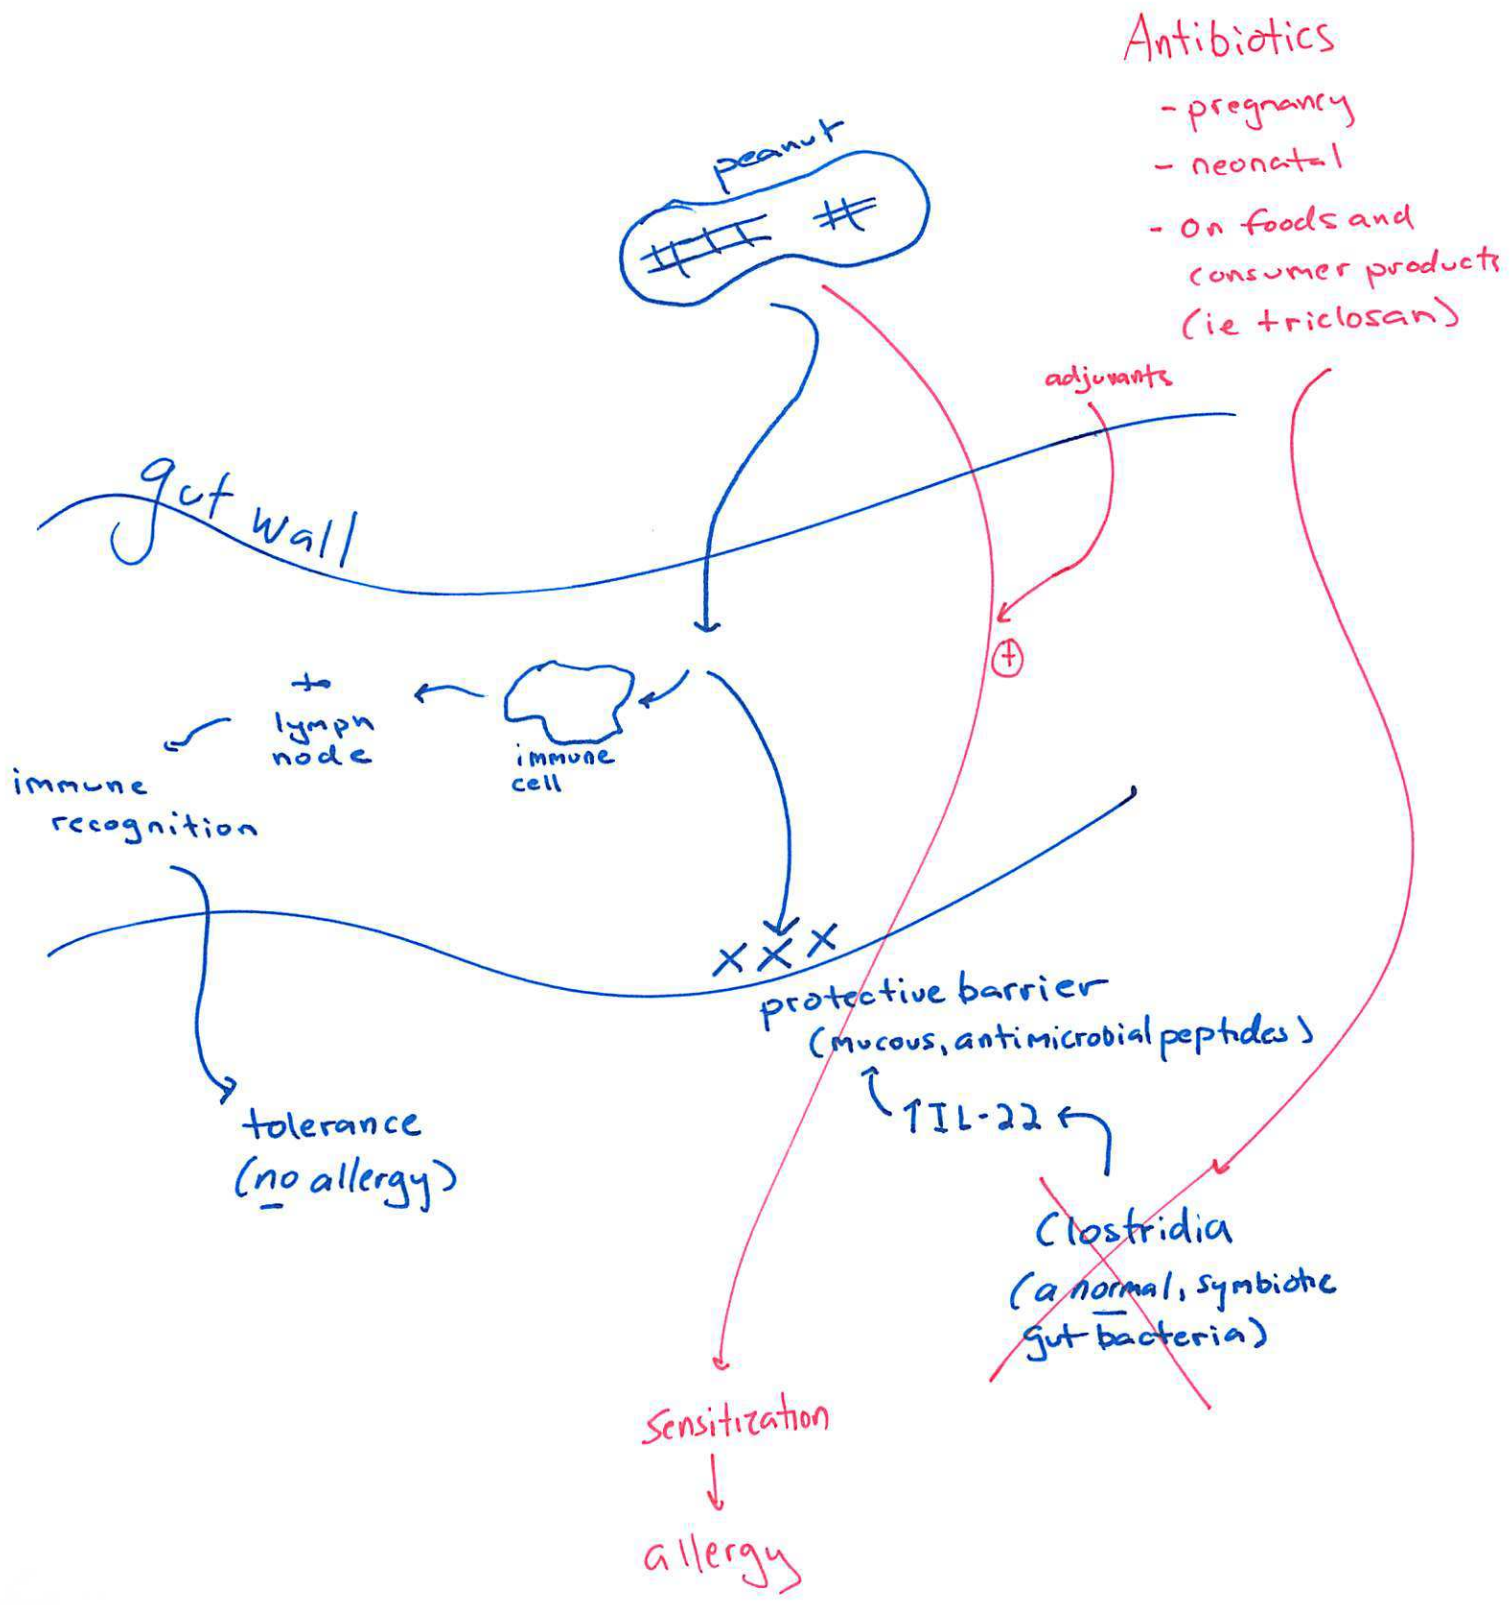 Antibiotics
- pregnancy
- neonatal
- on foods and
consumer products
(ie triclosan)
peanut
adjuvants
gut wall
+
to
lymph
node
immune
cell
immune
recognition
x x x
protective barrier
(mucous, antimicrobial peptides)
↑IL-22
tolerance
(no allergy)
Clostridia
(a normal, symbiotic
gut bacteria)
Sensitization
allergy